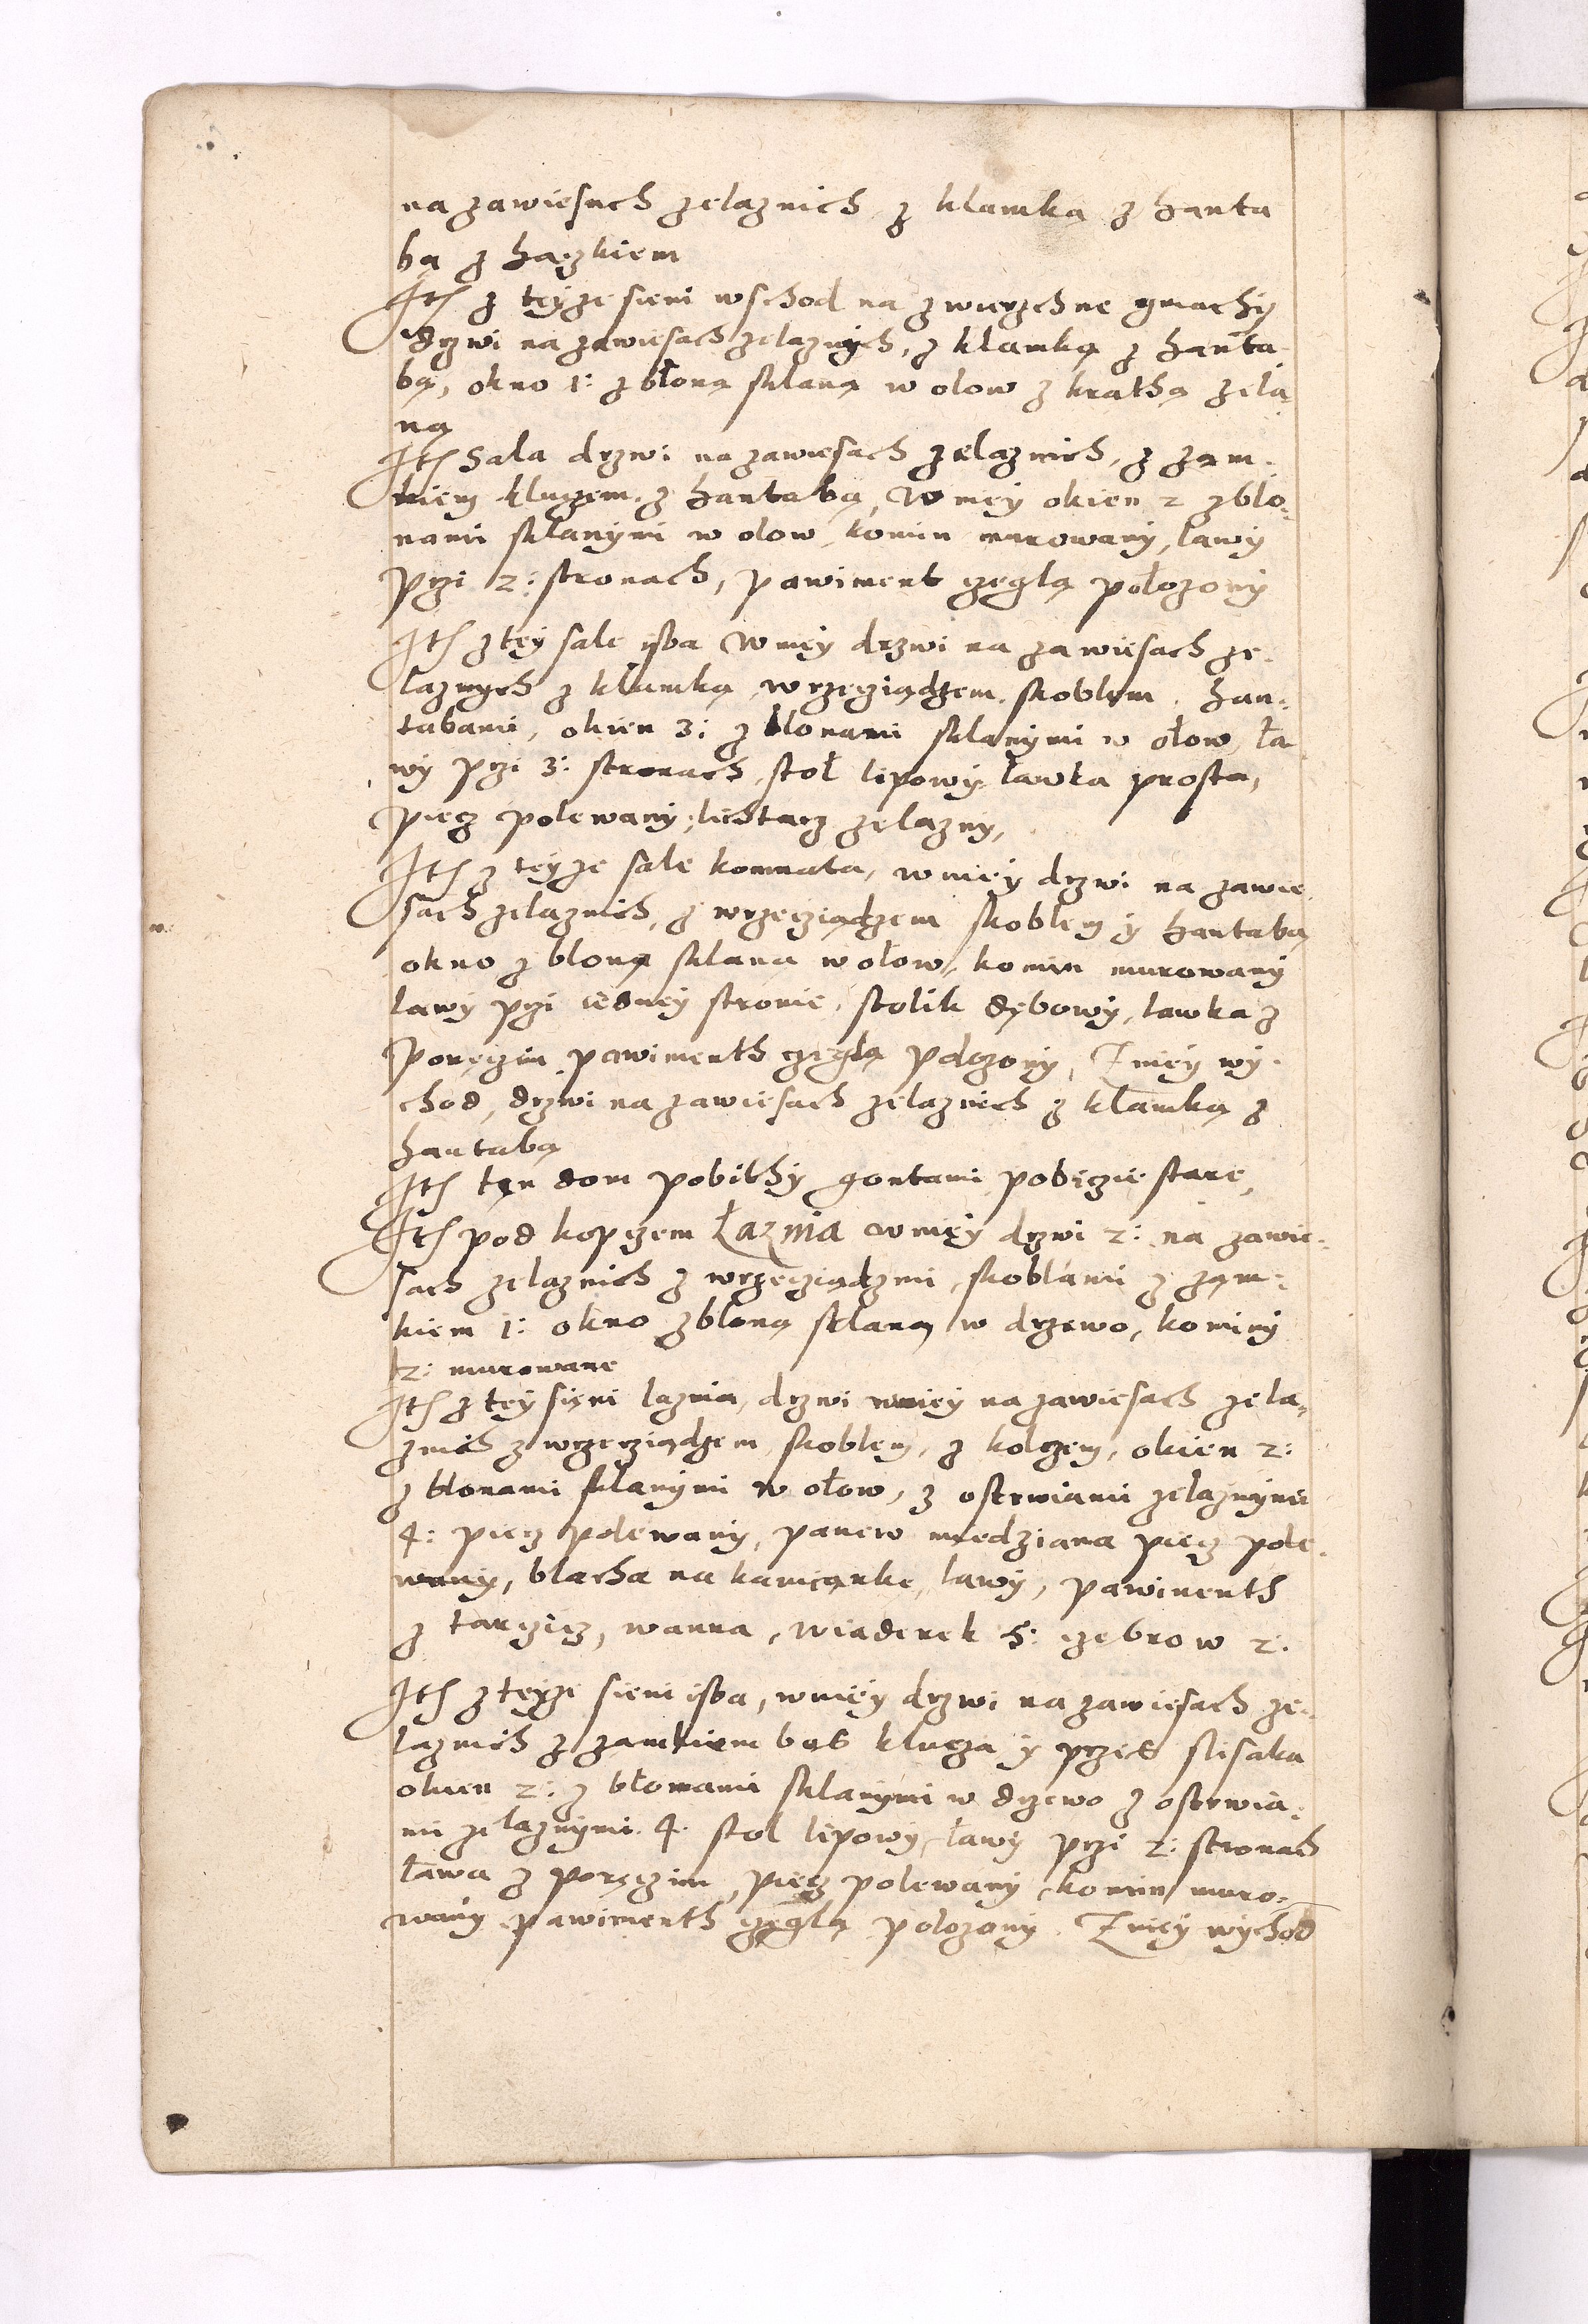 na zawiesach zelaznich z klamką z hanta
bą z haczkiem
Ith z teyze sieni wschod na zwierzchne gmachy
drzwi na zawiesach zelaznych, z klamką z hanta
bą, okno 1: z błoną sklaną w olow z krathą zela
ną
Ith Sala drzwi na zawiesach zelaznich, z zam-
kiem kluczem z hantabą, W niey okien 2 z blo-
nami sklanymi w olow, komin murowany, lawy
przi 2: stronach, pawiment czeglą położony
Ith z tey sale isba W niey drzwi na zawiesach ze-
laznych z klamką, wrzeciądzem, skoblem, han-
tabami, okien 3: z blonami sklanymi w ołow, ła
wy przi 3: stronach, stoł lipowy ławka prosta,
piecz polewany, lichtarz zelazny,
Ith z teyze sale komnata, w niey drzwi na zawie
sach zelaznich, z wrzeciądzem skoblem y hantabą
okno z bloną sklaną w ołow, komin murowany
lawy przi iedney stronie, stolik dębowy, lawka z
poręczim pawimenth czeglą polozony, Z niey wy-
chod, drzwi na zawiesach zelaznich z kłamką z
hantabą
Ith ten dom pobithy gontami pobicie stare,
Ith pod kopczem Łaznia w niey drzwi 2: na zawie-
sach zelaznich z wrzeciądzmi, skoblami z zam-
kiem 1: okno z bloną sklaną w drzewo, kominy
2: murowane
Ith z tey sieni laznia, drzwi w niey na zawiesach zela-
znich z wrzeciądzem, skoblem, z kolczem, okien 2:
z blonami sklanymi w ołow, z ostrwiami zelaznymi
4: piecz polewany, panew miedziana piecz pole-
wany, blacha na kamionke, lawy, pawimenth
z tarczicz, wanna, wiaderek 5: czebrow 2:
Ith z teyze sieni isba, w niey drzwi na zawiesach ze-
laznich z zamkiem bes klucza y przes slisaka
okien 2: z błonami sklanymi w drzewo z ostrwia-
mi zelaznymi 4. stol lipowy, ławy przi 2: stronach
ława z poręczim, piecz polewany, komin muro-
wany pawimenth czeglą polozony. Z niey wychod